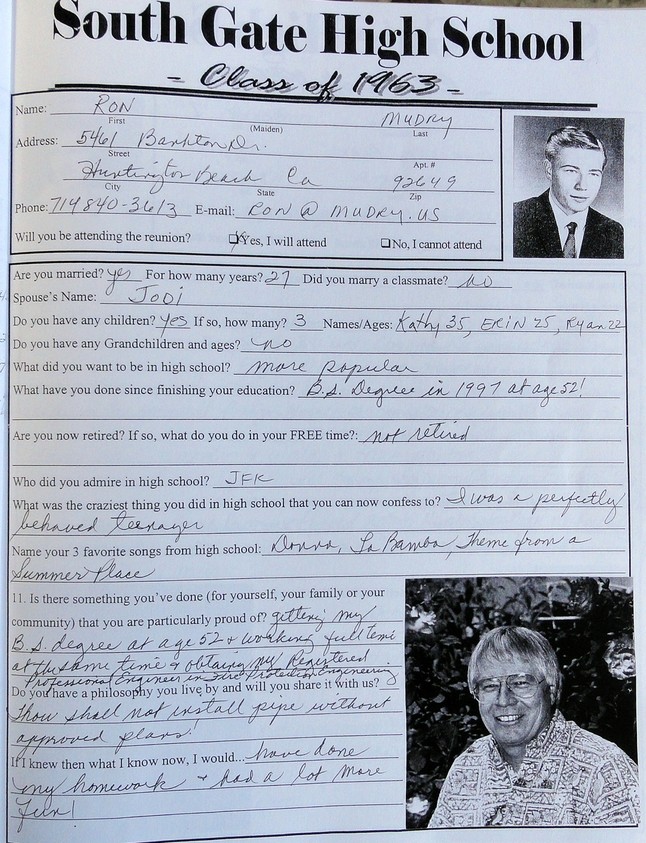 South Gate High School
- Class of 1963 -
Name: RON MUDRY
First (Maiden) Last
Address: 5461 Bankton Dr.
Street Apt. #
Huntington Beach Ca 92649
City State Zip
Phone: 714 840-3613 E-mail: RON @ MUDRY.US
Will you be attending the reunion? Yes, I will attend No, I cannot attend
Are you married? yes For how many years? 27 Did you marry a classmate? no
Spouse's Name: JODI
Do you have any children? Yes If so, how many? 3 Names/Ages: Kathy 35, ERIN 25, Ryan 22
Do you have any Grandchildren and ages? no
What did you want to be in high school? more popular
What have you done since finishing your education? B.S. Degree in 1997 at age 52!
Are you now retired? If so, what do you do in your FREE time?: not retired
Who did you admire in high school? JFK
What was the craziest thing you did in high school that you can now confess to? I was a perfectly
behaved teenager
Name your 3 favorite songs from high school: Donna, La Bamba, Theme from a
Summer Place
11. Is there something you've done (for yourself, your family or your
community) that you are particularly proud of? getting my
B.S. degree at age 52 & working full time
at the same time & obtaining my Registered
Professional Engineer in Fire Protection Engineering
Do you have a philosophy you live by and will you share it with us?
Thou shall not install pipe without
approved plans!
If I knew then what I know now, I would... have done
my homework & had a lot more
fun!